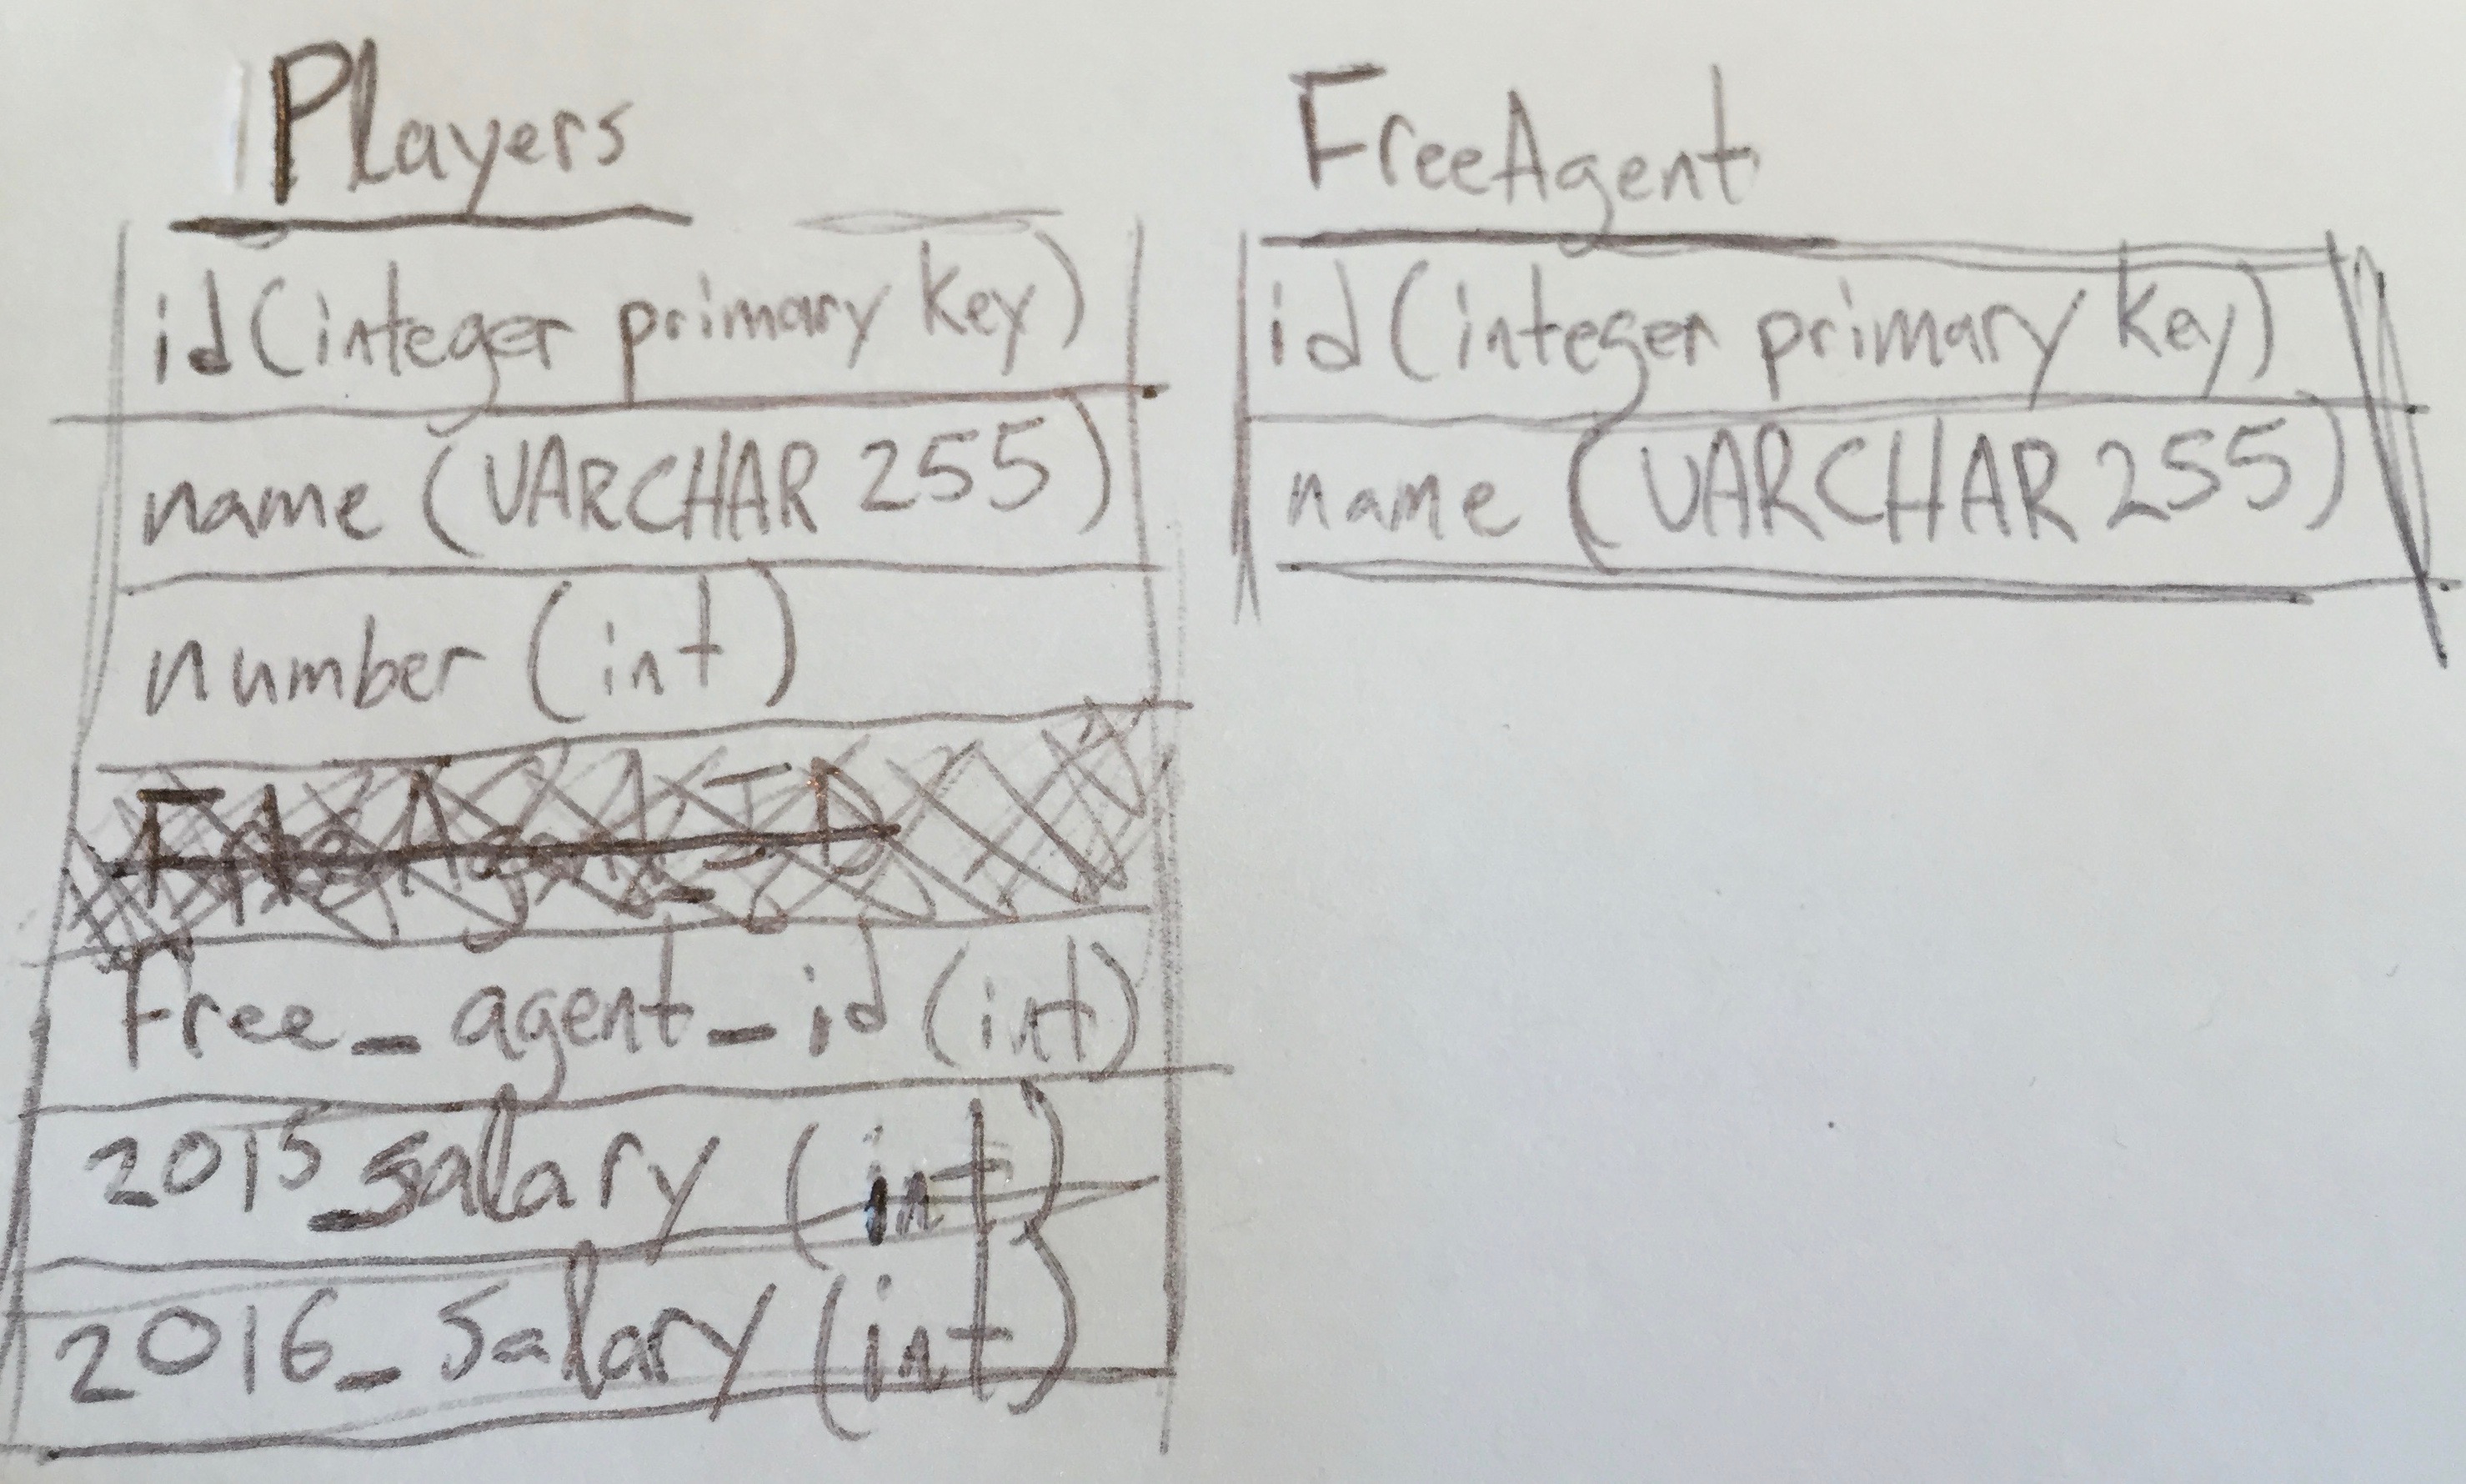 Players
id (integer primary key)
name (VARCHAR 255)
number (int)
Free Agent_ID
Free_agent_id (int)
2015_salary (int)
2016_salary (int)
FreeAgent
id (integer primary key)
name (VARCHAR 255)